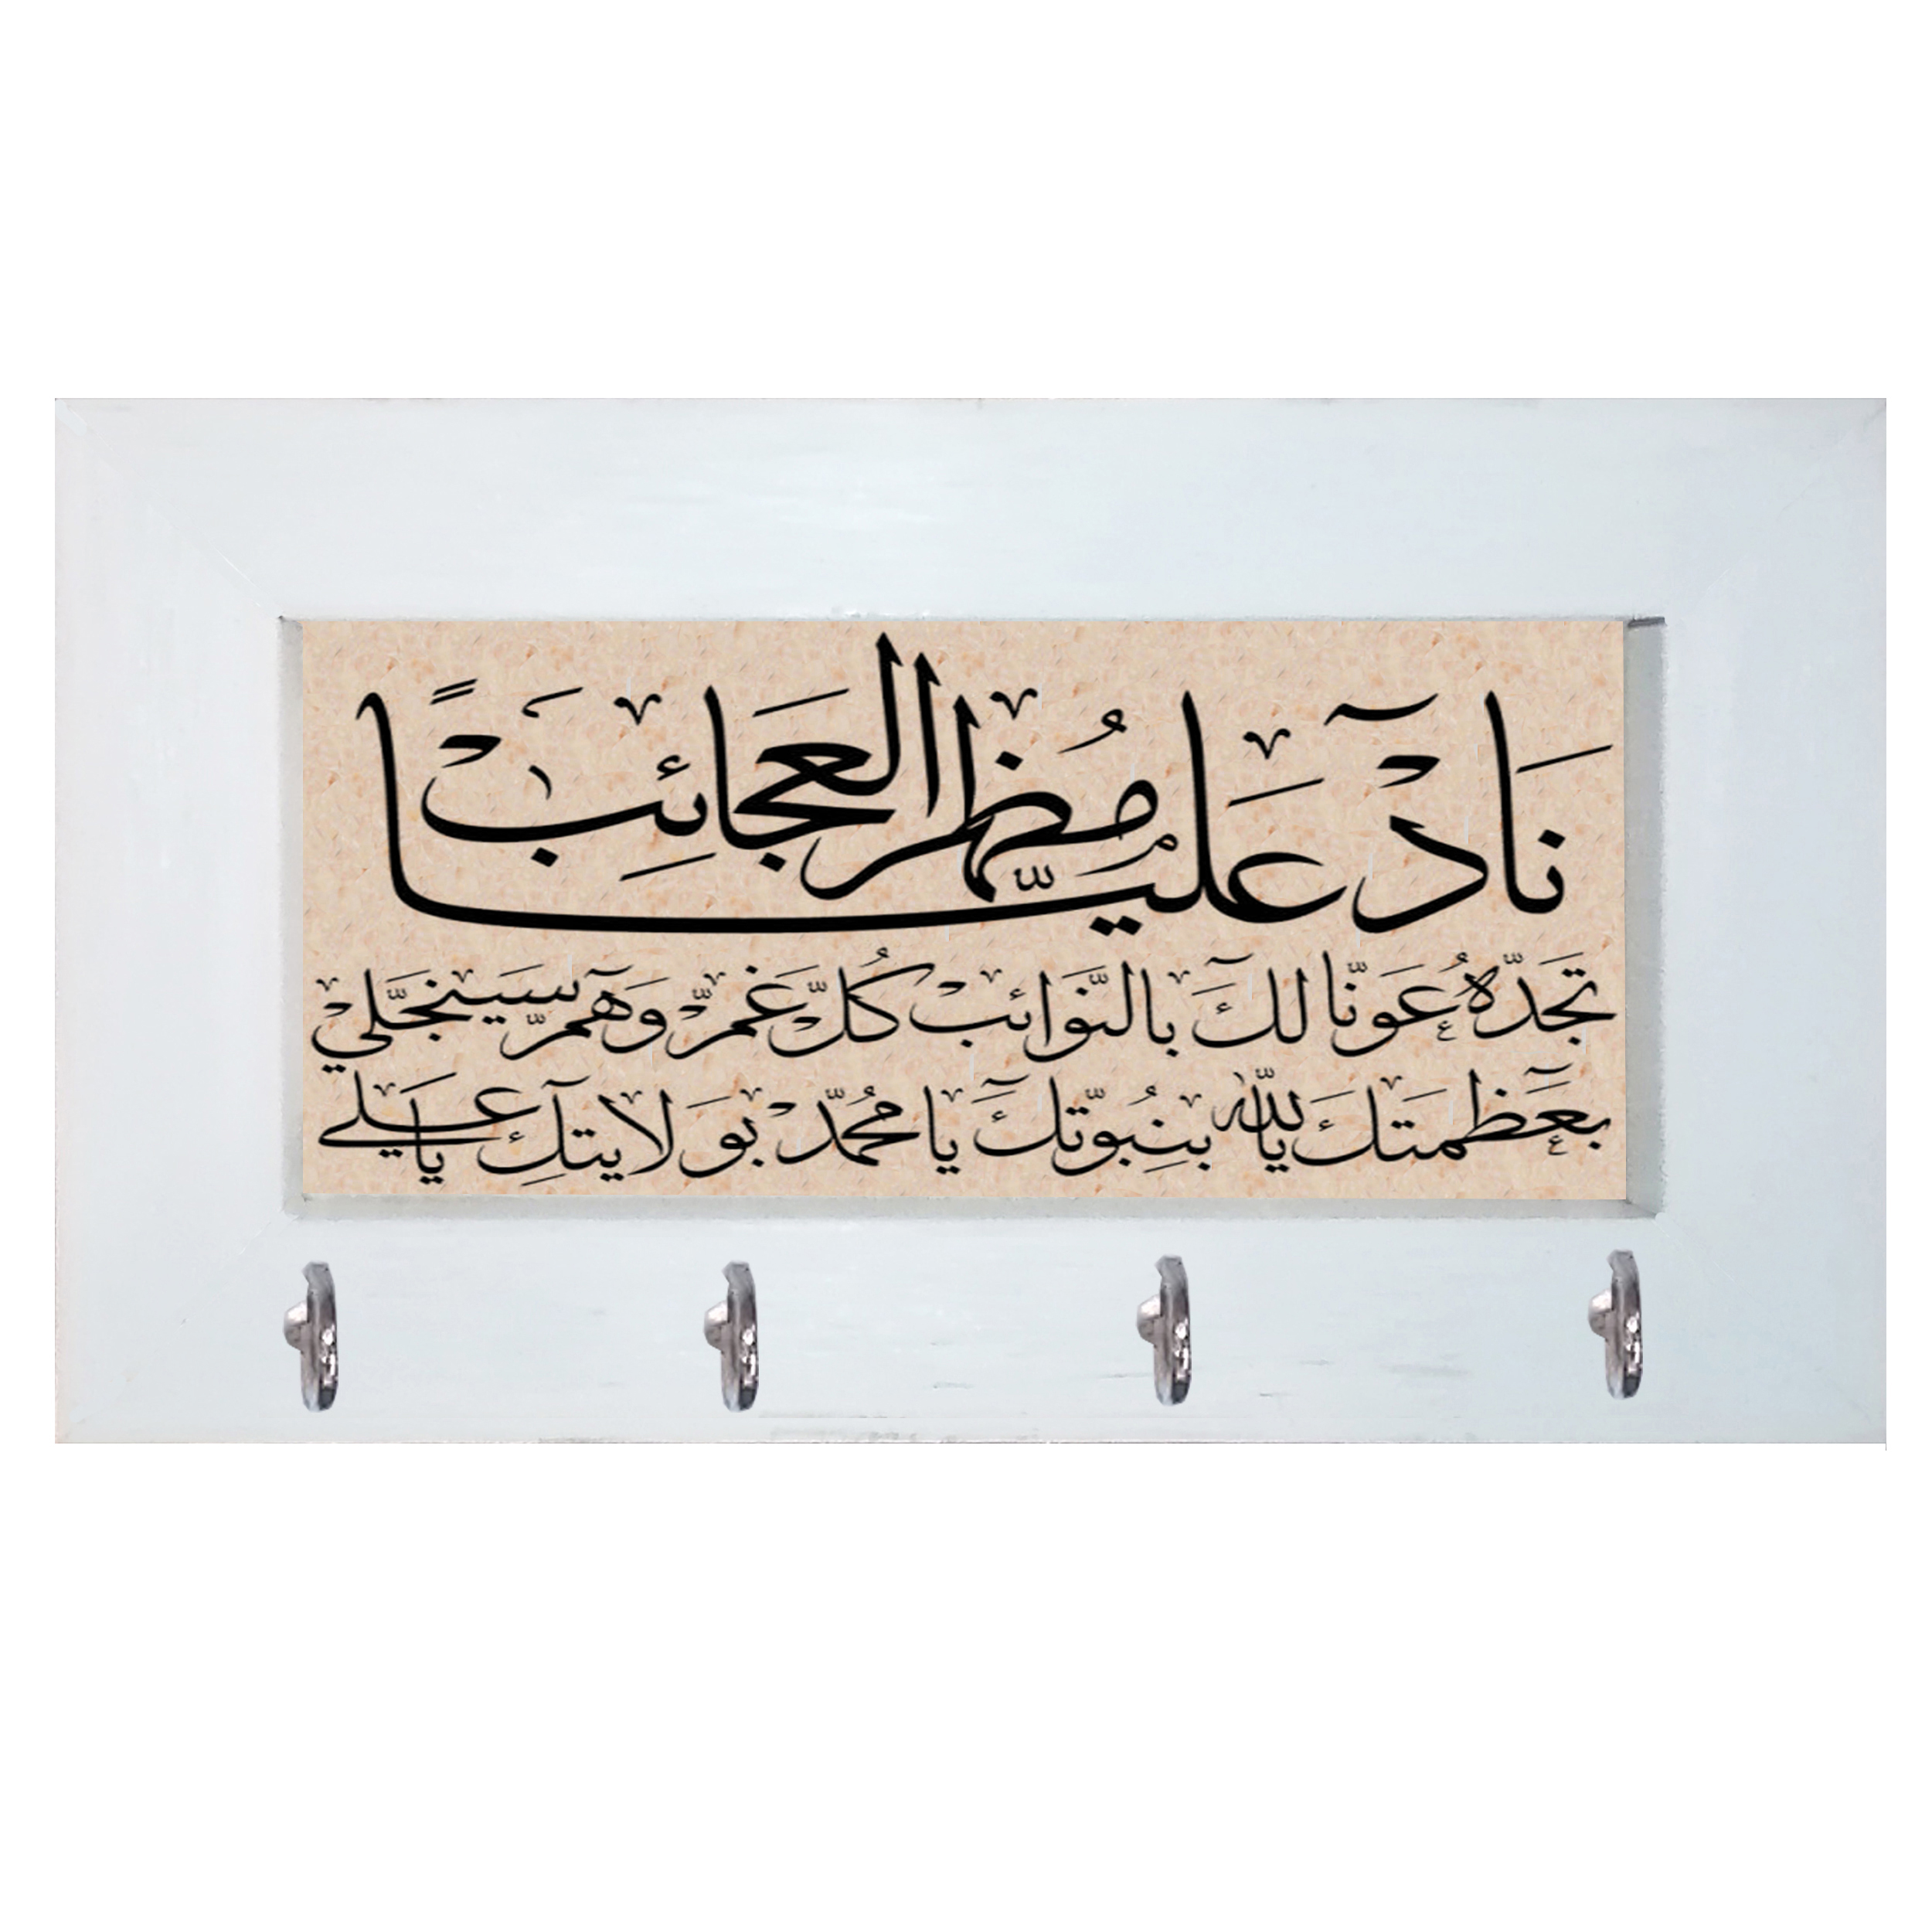 ناد علیا مظهر العجائب
تجده عونا لك بالنوائب كل غم وهم سينجلي
بعظمتك يا الله بنبوتك يا محمد بولايتك يا علي